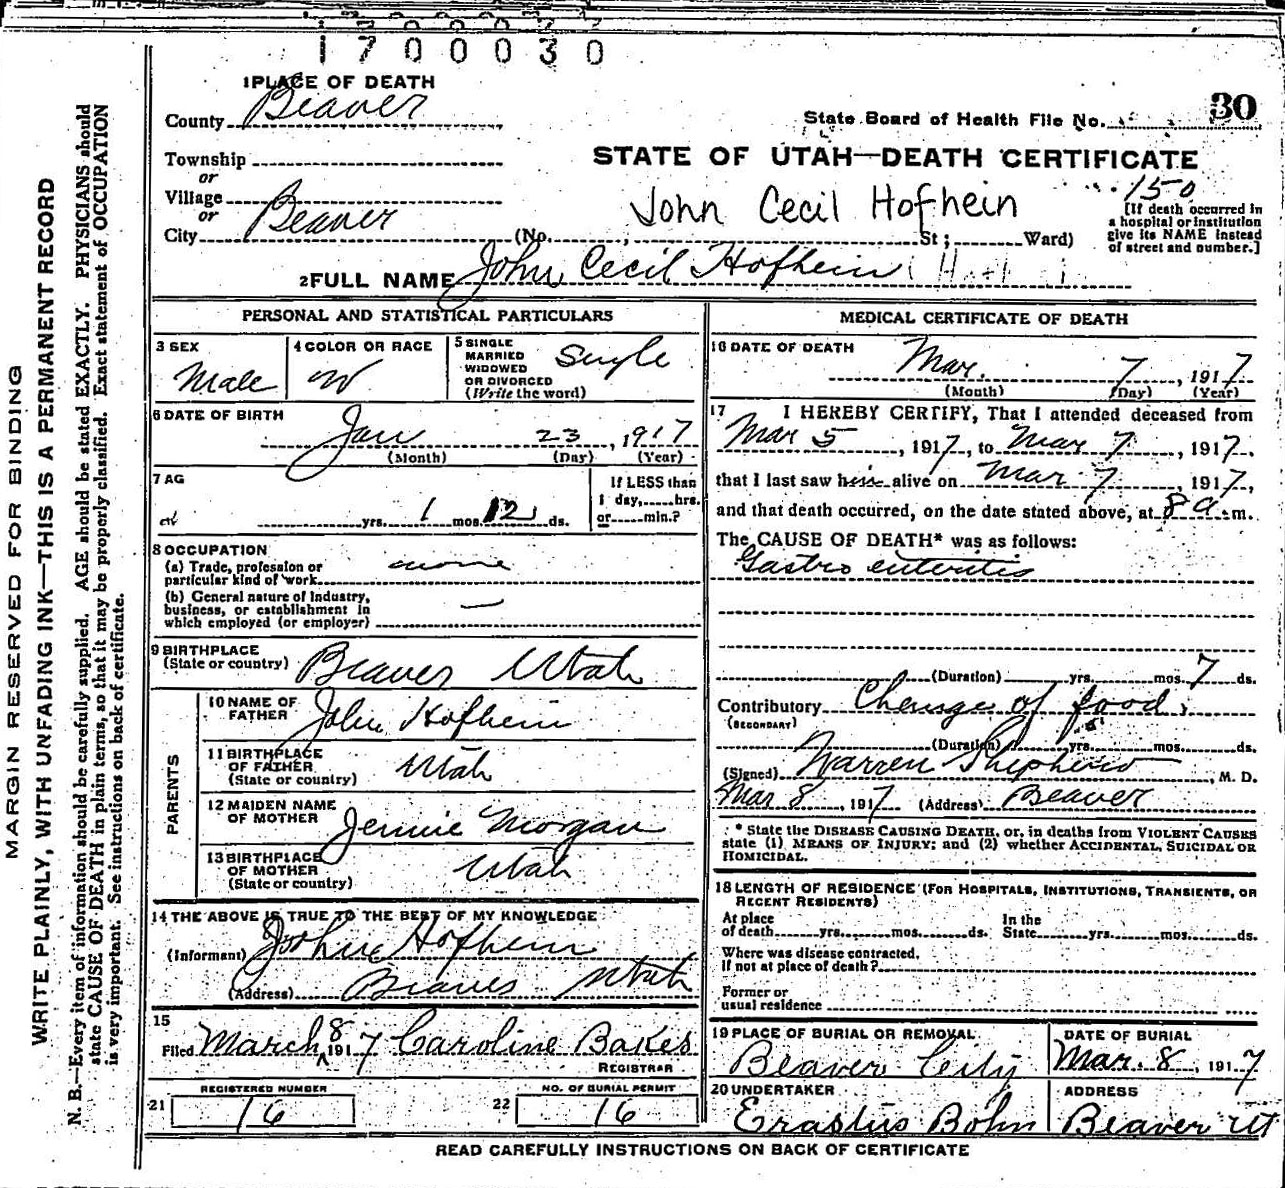 1700030
1 PLACE OF DEATH
County Beaver
Township
or
Village
or
City Beaver
30
State Board of Health File No.
STATE OF UTAH—DEATH CERTIFICATE
150
John Cecil Hofhein
(No. St; Ward)
[If death occurred in
a hospital or institution
give its NAME instead
of street and number.]
2 FULL NAME John Cecil Hofhein
PERSONAL AND STATISTICAL PARTICULARS
3 SEX
Male
4 COLOR OR RACE
W
5 SINGLE
MARRIED
WIDOWED
OR DIVORCED
(Write the word)
Single
6 DATE OF BIRTH
Jan 23, 1917
(Month) (Day) (Year)
7 AG
1 12
yrs. mos. ds.
If LESS than
1 day,......hrs.
or......min.?
8 OCCUPATION
(a) Trade, profession or
particular kind of work none
(b) General nature of industry,
business, or establishment in
which employed (or employer) —
9 BIRTHPLACE
(State or country) Beaver Utah
PARENTS
10 NAME OF
FATHER John Hofhein
11 BIRTHPLACE
OF FATHER
(State or country) Utah
12 MAIDEN NAME
OF MOTHER Jennie Morgan
13 BIRTHPLACE
OF MOTHER
(State or country) Utah
14 THE ABOVE IS TRUE TO THE BEST OF MY KNOWLEDGE
(Informant) Hofhein
(Address) Beaver Utah
15
Filed March 8 1917 Caroline Bakes
REGISTRAR
REGISTERED NUMBER
21 16
NO. OF BURIAL PERMIT
22 16
MEDICAL CERTIFICATE OF DEATH
16 DATE OF DEATH
Mar. 7, 1917
(Month) (Day) (Year)
17 I HEREBY CERTIFY, That I attended deceased from
Mar 5, 1917, to Mar 7, 1917,
that I last saw him alive on Mar 7, 1917,
and that death occurred, on the date stated above, at 8 a.m.
The CAUSE OF DEATH* was as follows:
Gastro enteritis
(Duration) yrs. mos. 7 ds.
Contributory Change of food
(SECONDARY)
(Duration) yrs. mos. ds.
(Signed) Warren Shepherd, M. D.
Mar 8, 1917 (Address) Beaver
* State the DISEASE CAUSING DEATH, or, in deaths from VIOLENT CAUSES
state (1) MEANS OF INJURY; and (2) whether ACCIDENTAL, SUICIDAL OR
HOMICIDAL.
18 LENGTH OF RESIDENCE (FOR HOSPITALS, INSTITUTIONS, TRANSIENTS, OR
RECENT RESIDENTS)
At place In the
of death yrs. mos. ds. State yrs. mos. ds.
Where was disease contracted,
if not at place of death?
Former or
usual residence
19 PLACE OF BURIAL OR REMOVAL
Beaver City
DATE OF BURIAL
Mar. 8, 1917
20 UNDERTAKER
Erastus Bohn
ADDRESS
Beaver Ut
READ CAREFULLY INSTRUCTIONS ON BACK OF CERTIFICATE
MARGIN RESERVED FOR BINDING
WRITE PLAINLY, WITH UNFADING INK—THIS IS A PERMANENT RECORD
N. B.—Every item of information should be carefully supplied. AGE should be stated EXACTLY. PHYSICIANS should
state CAUSE OF DEATH in plain terms, so that it may be properly classified. Exact statement of OCCUPATION
is very important. See instructions on back of certificate.